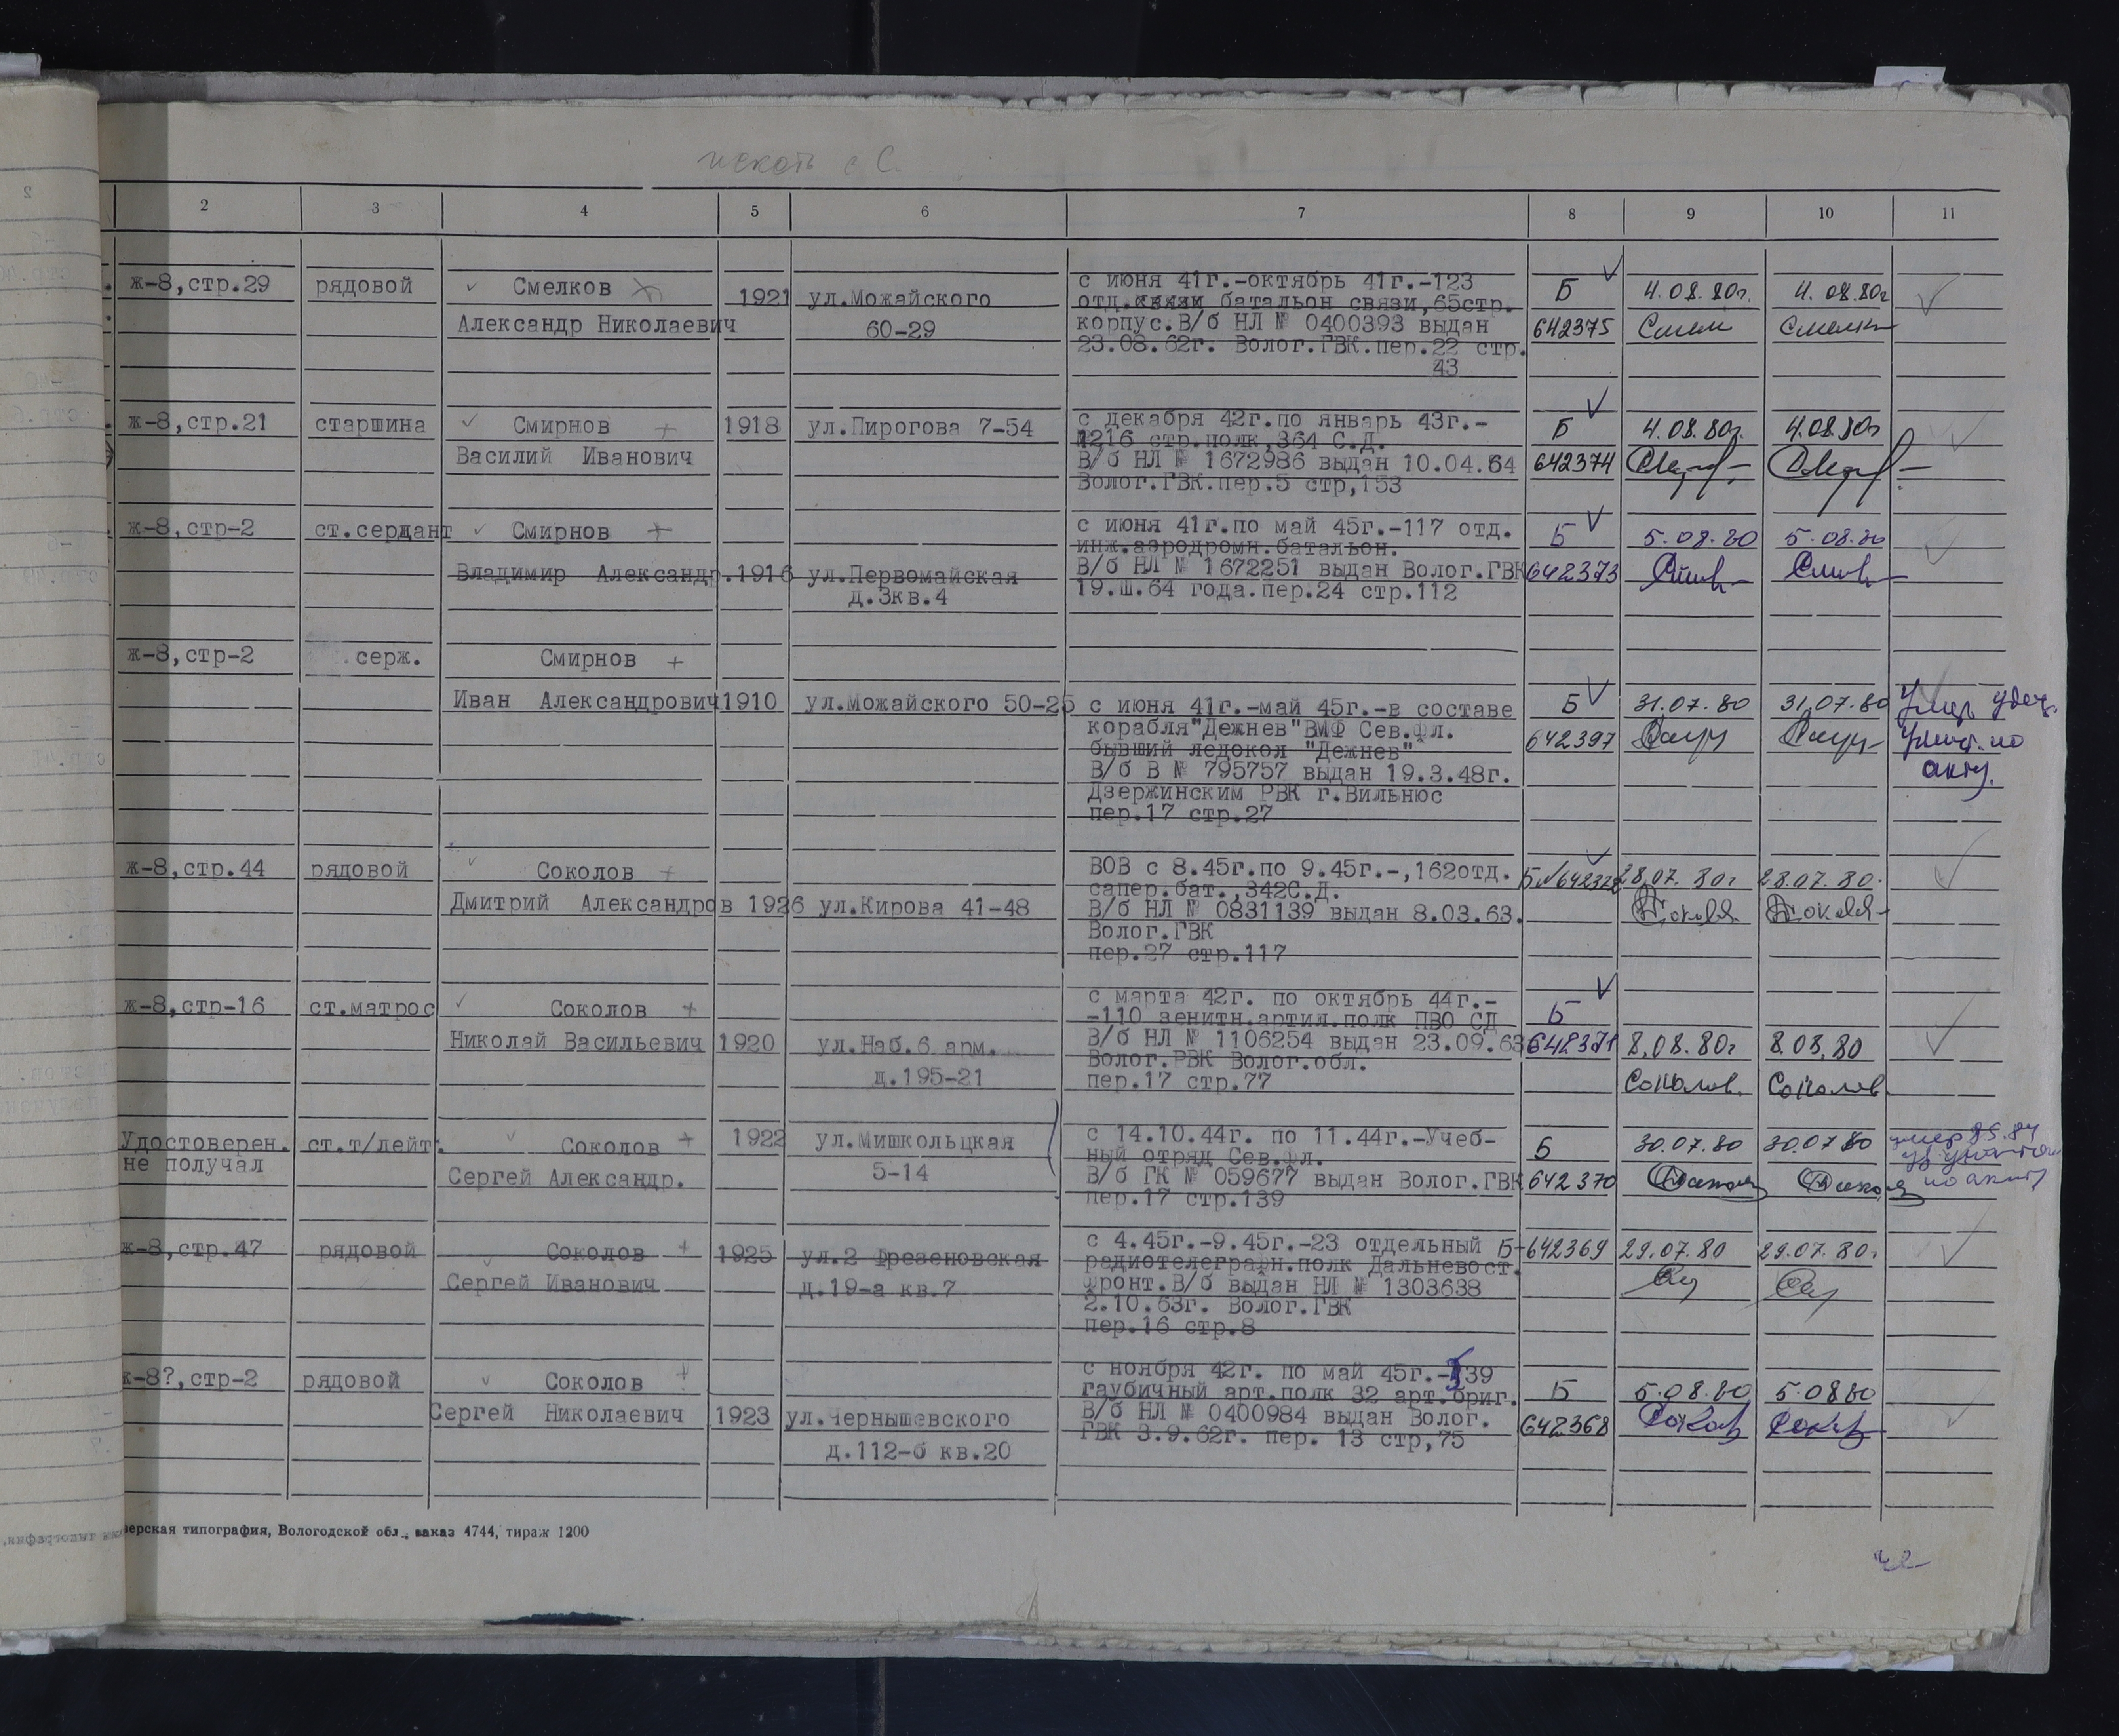 искать с С.
2 3 4 5 6 7 8 9 10 11
ж-8,стр.29 рядовой Смелков 1921 ул.Можайского с июня 41г.-октябрь 41г.-123 Б 4.08.80г. 4.08.80г
отд.связи батальон связи,65стр.
Александр Николаевич 60-29 корпус.В/б НЛ № 0400393 выдан 642375
23.08.62г. Волог.ГВК.пер.22 стр.
43
ж-8,стр.21 старшина Смирнов 1918 ул.Пирогова 7-54 с декабря 42г.по январь 43г.- Б 4.08.80г. 4.08.80г
1216 стр.полк,364 С.Д.
Василий Иванович В/б НЛ № 1672986 выдан 10.04.64 642374
Волог.ГВК.пер.5 стр,153
ж-8,стр-2 ст.сердант Смирнов с июня 41г.по май 45г.-117 отд. Б 5.08.80 5.08.80
инж.аэродромн.батальон.
Владимир Александр.1916 ул.Первомайская В/б НЛ № 1672251 выдан Волог.ГВК 642373
д.3кв.4 19.Ш.64 года.пер.24 стр.112
ж-8,стр-2 серж. Смирнов
Иван Александрович 1910 ул.Можайского 50-25 с июня 41г.-май 45г.-в составе Б 31.07.80 31.07.80 Умер удост.
корабля"Дежнев"ВМФ Сев.Фл. 642397 Уничт. по
бывший ледокол "Дежнев" акту.
В/б В № 795757 выдан 19.3.48г.
Дзержинским РВК г.Вильнюс
пер.17 стр.27
ж-8,стр.44 рядовой Соколов ВОВ с 8.45г.по 9.45г.-,162отд. Б№642372 28.07.80г 28.07.80.
сапер.бат.,342С.Д.
Дмитрий Александров 1926 ул.Кирова 41-48 В/б НЛ № 0831139 выдан 8.03.63.
Волог.ГВК
пер.27 стр.117
ж-8,стр-16 ст.матрос Соколов с марта 42г. по октябрь 44г.- Б
-110 зенитн.артил.полк ПВО СД
Николай Васильевич 1920 ул.Наб.6 арм. В/б НЛ № 1106254 выдан 23.09.63 642371 8.08.80г 8.08.80
Волог.РВК Волог.обл.
д.195-21 пер.17 стр.77 Соколов. Соколов
Удостоверен. ст.т/лейт. Соколов 1922 ул.Мишкольцкая с 14.10.44г. по 11.44г.-Учеб- Б 30.07.80 30.07.80
не получал ный отряд Сев.Фл.
Сергей Александр. 5-14 В/б ГК № 059677 выдан Волог.ГВК 642370 по акту
пер.17 стр.139
ж-8,стр.47 рядовой Соколов 1925 ул.2 Фрезеновская с 4.45г.-9.45г.-23 отдельный Б-642369 29.07.80 29.07.80г
радиотелеграфн.полк Дальневост.
Сергей Иванович д.19-а кв.7 фронт.В/б выдан НЛ № 1303638
2.10.63г. Волог.ГВК
пер.16 стр.8
ж-8?,стр-2 рядовой Соколов с ноября 42г. по май 45г.-139
гаубичный арт.полк 32 арт.бриг. Б 5.08.80 5.08.80
Сергей Николаевич 1923 ул.Чернышевского В/б НЛ № 0400984 выдан Волог. 642368
ГВК 3.9.62г. пер. 13 стр,75
д.112-б кв.20
верская типография, Вологодской обл., заказ 4744, тираж 1200